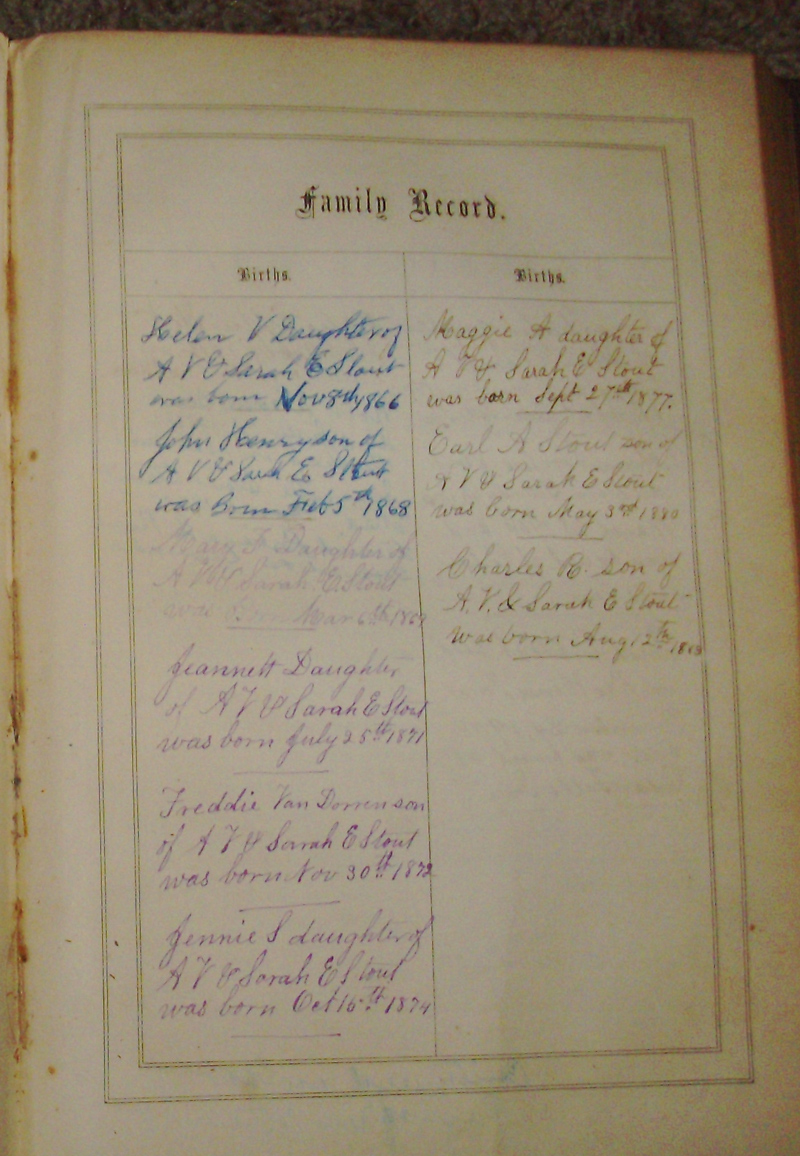 Family Record.
Births.
Helen V Daughter of
A V & Sarah E Stout
was born Nov 8th 1866
John Henry son of
A V & Sarah E Stout
was Born Feb 5th 1868
Mary F Daughter of
A V & Sarah E Stout
was Born Mar 6th
Jeannett Daughter
of A V & Sarah E Stout
was born July 25th 1871
Freddie Van Dorren son
of A V & Sarah E Stout
was born Nov 30th 1872
Jennie S daughter of
A V & Sarah E Stout
was born Oct 16th 1874
Births.
Maggie A daughter of
A V & Sarah E Stout
was born Sept 27th 1877.
Earl A Stout son of
A V & Sarah E Stout
was born May 3rd 1880
Charles R. son of
A. V. & Sarah E Stout
was born Aug 12th